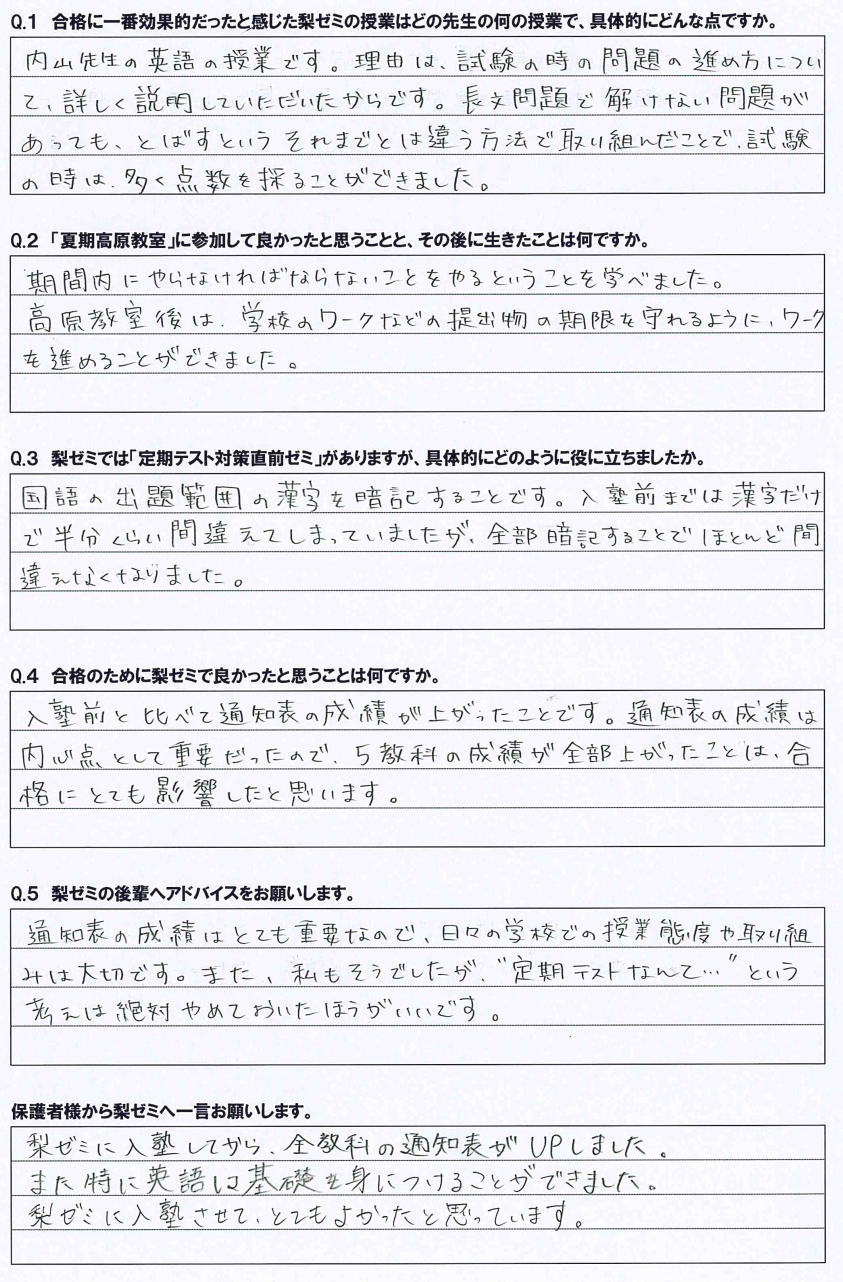 Q.1 合格に一番効果的だったと感じた梨ゼミの授業はどの先生の何の授業で、具体的にどんな点ですか。
内山先生の英語の授業です。理由は、試験の時の問題の進め方につい
て、詳しく説明していただいたからです。長文問題で解けない問題が
あっても、とばすというそれまでとは違う方法で取り組んだことで、試験
の時は、多く点数を採ることができました。
Q.2 「夏期高原教室」に参加して良かったと思うことと、その後に生きたことは何ですか。
期間内にやらなければならないことをやるということを学べました。
高原教室後は、学校のワークなどの提出物の期限を守れるように、ワーク
を進めることができました。
Q.3 梨ゼミでは「定期テスト対策直前ゼミ」がありますが、具体的にどのように役に立ちましたか。
国語の出題範囲の漢字を暗記することです。入塾前までは漢字だけ
で半分くらい間違えてしまっていましたが、全部暗記することでほとんど間
違えなくなりました。
Q.4 合格のために梨ゼミで良かったと思うことは何ですか。
入塾前と比べて通知表の成績が上がったことです。通知表の成績は
内心点として重要だったので、5教科の成績が全部上がったことは、合
格にとても影響したと思います。
Q.5 梨ゼミの後輩へアドバイスをお願いします。
通知表の成績はとても重要なので、日々の学校での授業態度や取り組
みは大切です。また、私もそうでしたが、“定期テストなんて…”という
考えは絶対やめておいたほうがいいです。
保護者様から梨ゼミへ一言お願いします。
梨ゼミに入塾してから、全教科の通知表がUPしました。
また特に英語は基礎を身につけることができました。
梨ゼミに入塾させて、とてもよかったと思っています。